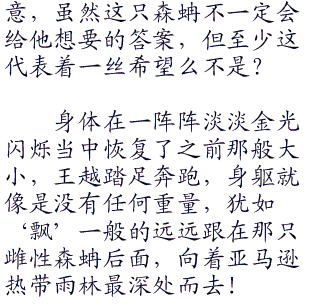 意，虽然这只森蚺不一定会
给他想要的答案，但至少这
代表着一丝希望么不是？
身体在一阵阵淡淡金光
闪烁当中恢复了之前那般大
小，王越踏足奔跑，身躯就
像是没有任何重量，犹如
‘飘’一般的远远跟在那只
雌性森蚺后面，向着亚马逊
热带雨林最深处而去！